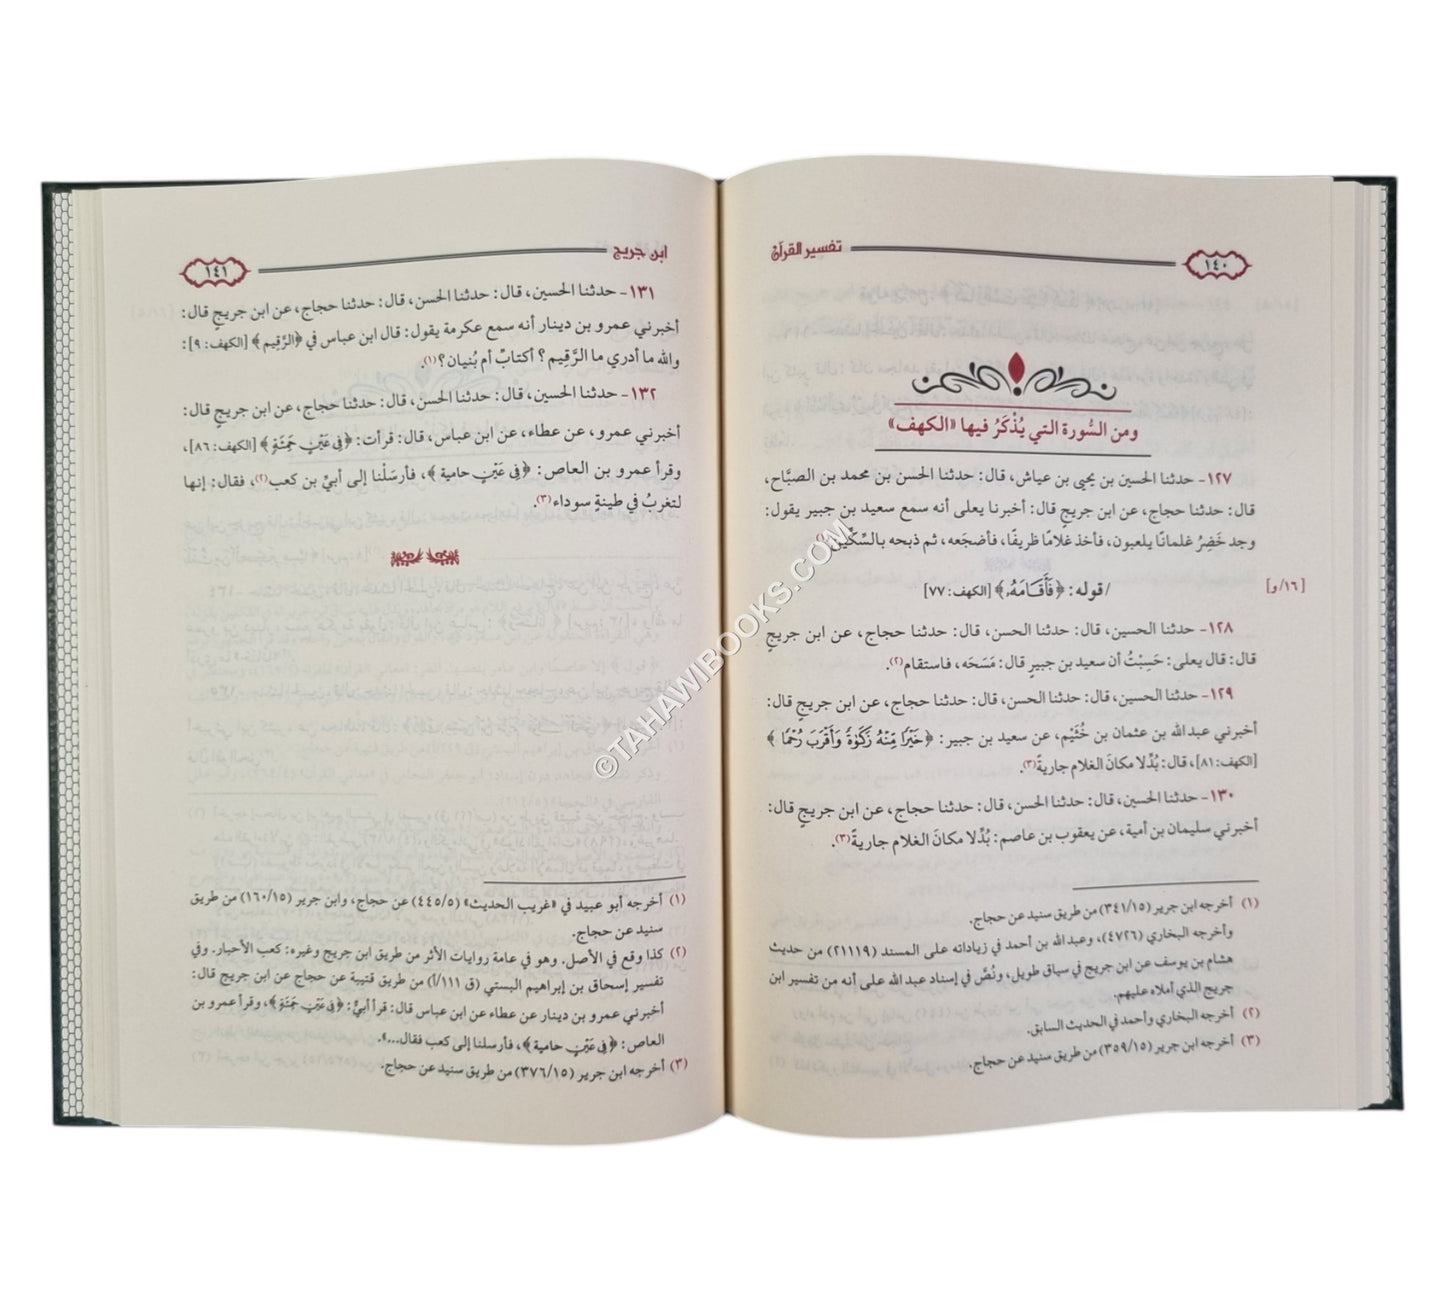 ١٤٠
تفسير القرآن
ومن السُّورة التي يُذْكَرُ فيها «الكهف»
١٢٧- حدثنا الحسين بن يحيى بن عياش، قال: حدثنا الحسن بن محمد بن الصبَّاح،
قال: حدثنا حجاج، عن ابن جريجٍ قال: أخبرنا يعلى أنه سمع سعيد بن جبير يقول:
وجد خَضِرُ غلمانًا يلعبون، فأخذ غلامًا ظريفًا، فأضجَعه، ثم ذبحه بالسِّكِّين
[١٦/و]
/قوله: ﴿فَأَقَامَهُۥ﴾ [الكهف: ٧٧]
١٢٨- حدثنا الحسين، قال: حدثنا الحسن، قال: حدثنا حجاج، عن ابن جريجٍ
قال: قال يعلى: حَسِبْتُ أن سعيد بن جبيرٍ قال: مَسَحَه، فاستقام(٢).
١٢٩- حدثنا الحسين، قال: حدثنا الحسن، قال: حدثنا حجاج، عن ابن جريجٍ قال:
أخبرني عبدالله بن عثمان بن خُثَيْم، عن سعيد بن جبير: ﴿خَيْرًا مِّنْهُ زَكَوٰةً وَأَقْرَبَ رُحْمًا﴾
[الكهف: ٨١]، قال: بُدِّلا مكانَ الغلام جاريةً(٣).
١٣٠- حدثنا الحسين، قال: حدثنا الحسن، قال: حدثنا حجاج، عن ابن جريجٍ قال:
أخبرني سليمان بن أمية، عن يعقوب بن عاصم: بُدِّلا مكانَ الغلام جاريةً(٣).
(١) أخرجه ابن جرير (٣٤١/١٥) من طريق سنيد عن حجاج.
وأخرجه البخاري (٤٧٢٦)، وعبدالله بن أحمد في زياداته على المسند (٢١١١٩) من حديث
هشام بن يوسف عن ابن جريج في سياق طويل، ونُصَّ في إسناد عبدالله على أنه من تفسير ابن
جريج الذي أملاه عليهم.
(٢) أخرجه البخاري وأحمد في الحديث السابق.
(٣) أخرجه ابن جرير (٣٥٩/١٥) من طريق سنيد عن حجاج.
ابن جريج
١٤١
١٣١- حدثنا الحسين، قال: حدثنا الحسن، قال: حدثنا حجاج، عن ابن جريجٍ قال:
أخبرني عمرو بن دينار أنه سمع عكرمة يقول: قال ابن عباس في ﴿الرَّقِيم﴾ [الكهف: ٩]:
والله ما أدري ما الرَّقِيم؟ أكتابٌ أم بُنيان؟(١).
١٣٢- حدثنا الحسين، قال: حدثنا الحسن، قال: حدثنا حجاج، عن ابن جريجٍ قال:
أخبرني عمرو، عن عطاء، عن ابن عباس، قال: قرأت: ﴿فِي عَيْنٍ حَمِئَةٍ﴾ [الكهف: ٨٦]،
وقرأ عمرو بن العاص: ﴿فِي عَيْنٍ حامية﴾، فأرسَلْنا إلى أبيِّ بن كعب(٢)، فقال: إنها
لتغربُ في طينةٍ سوداء(٣).
(١) أخرجه أبو عبيد في «غريب الحديث» (٤٤٥/٥) عن حجاج، وابن جرير (١٦٠/١٥) من طريق
سنيد عن حجاج.
(٢) كذا وقع في الأصل. وهو في عامة روايات الأثر من طريق ابن جريج وغيره: كعب الأحبار. وفي
تفسير إسحاق بن إبراهيم البستي (ق ١١١/أ) من طريق قتيبة عن حجاج عن ابن جريج قال:
أخبرني عمرو بن دينار عن عطاء عن ابن عباس قال: قرأ أبيٌّ: ﴿فِي عَيْنٍ حَمِئَةٍ﴾، وقرأ عمرو بن
العاص: ﴿فِي عَيْنٍ حامية﴾، فأرسلنا إلى كعب فقال...».
(٣) أخرجه ابن جرير (٣٧٦/١٥) من طريق سنيد عن حجاج.
©TAHAWIBOOKS.COM